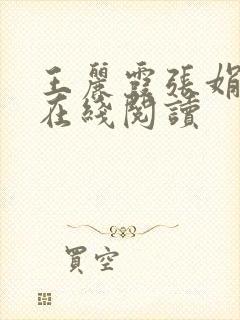 王麗霞張娟
在綫閱讀
買空